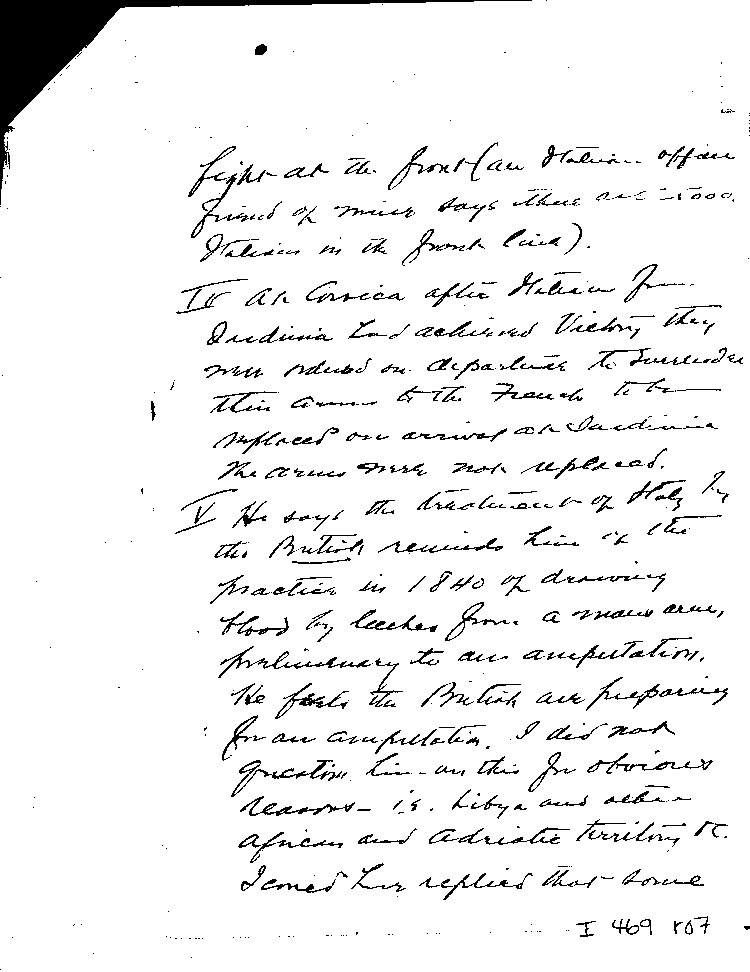 fight at the front (an Italian officer
friend of mine says there are 5000
Italians in the front line).
IV At Corsica after Italians from
Sardinia had achieved Victory they
were ordered on departure to surrender
their arms to the French to be
replaced on arrival at Sardinia
The arms were not replaced.
V He says the treatment of Italy by
the British reminds him of the
practice in 1840 of drawing
blood by leeches from a mans arm,
preliminary to an amputation.
He feels the British are preparing
for an amputation. I did not
question him on this for obvious
reasons – i.e. Libya and other
African and Adriatic territory &c.
I could have replied that some
I 469 107